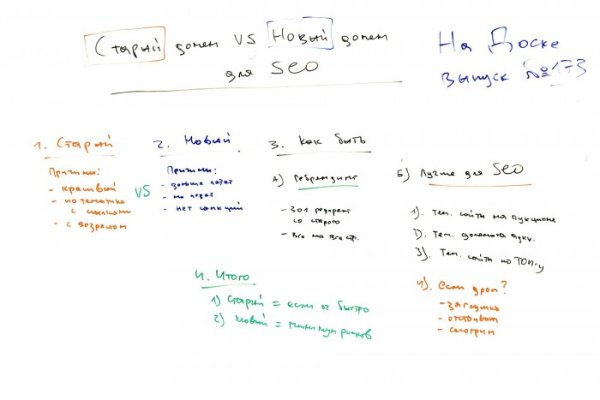 Старый домен VS Новый домен
для SEO
На Доске
выпуск №173
1. Старый
Причины:
- красивый
- по тематике
с ссылками
- с возрастом
VS
2. Новый
Причины:
- дольше
- не
- нет санкций
3. Как быть
А) Ребрендинг
- 301 редирект
со старого
- все на все стр.
Б) Лучше для SEO
1). Тем. сайты на аукционе
2). Тем. домена аукц.
3). Тем. сайты по ТОП-у
4). если дроп?
- заглушка
- отстоился
- смотрим
4. Итого
1) Старый = если ок быстро
2) Новый = минимум рисков